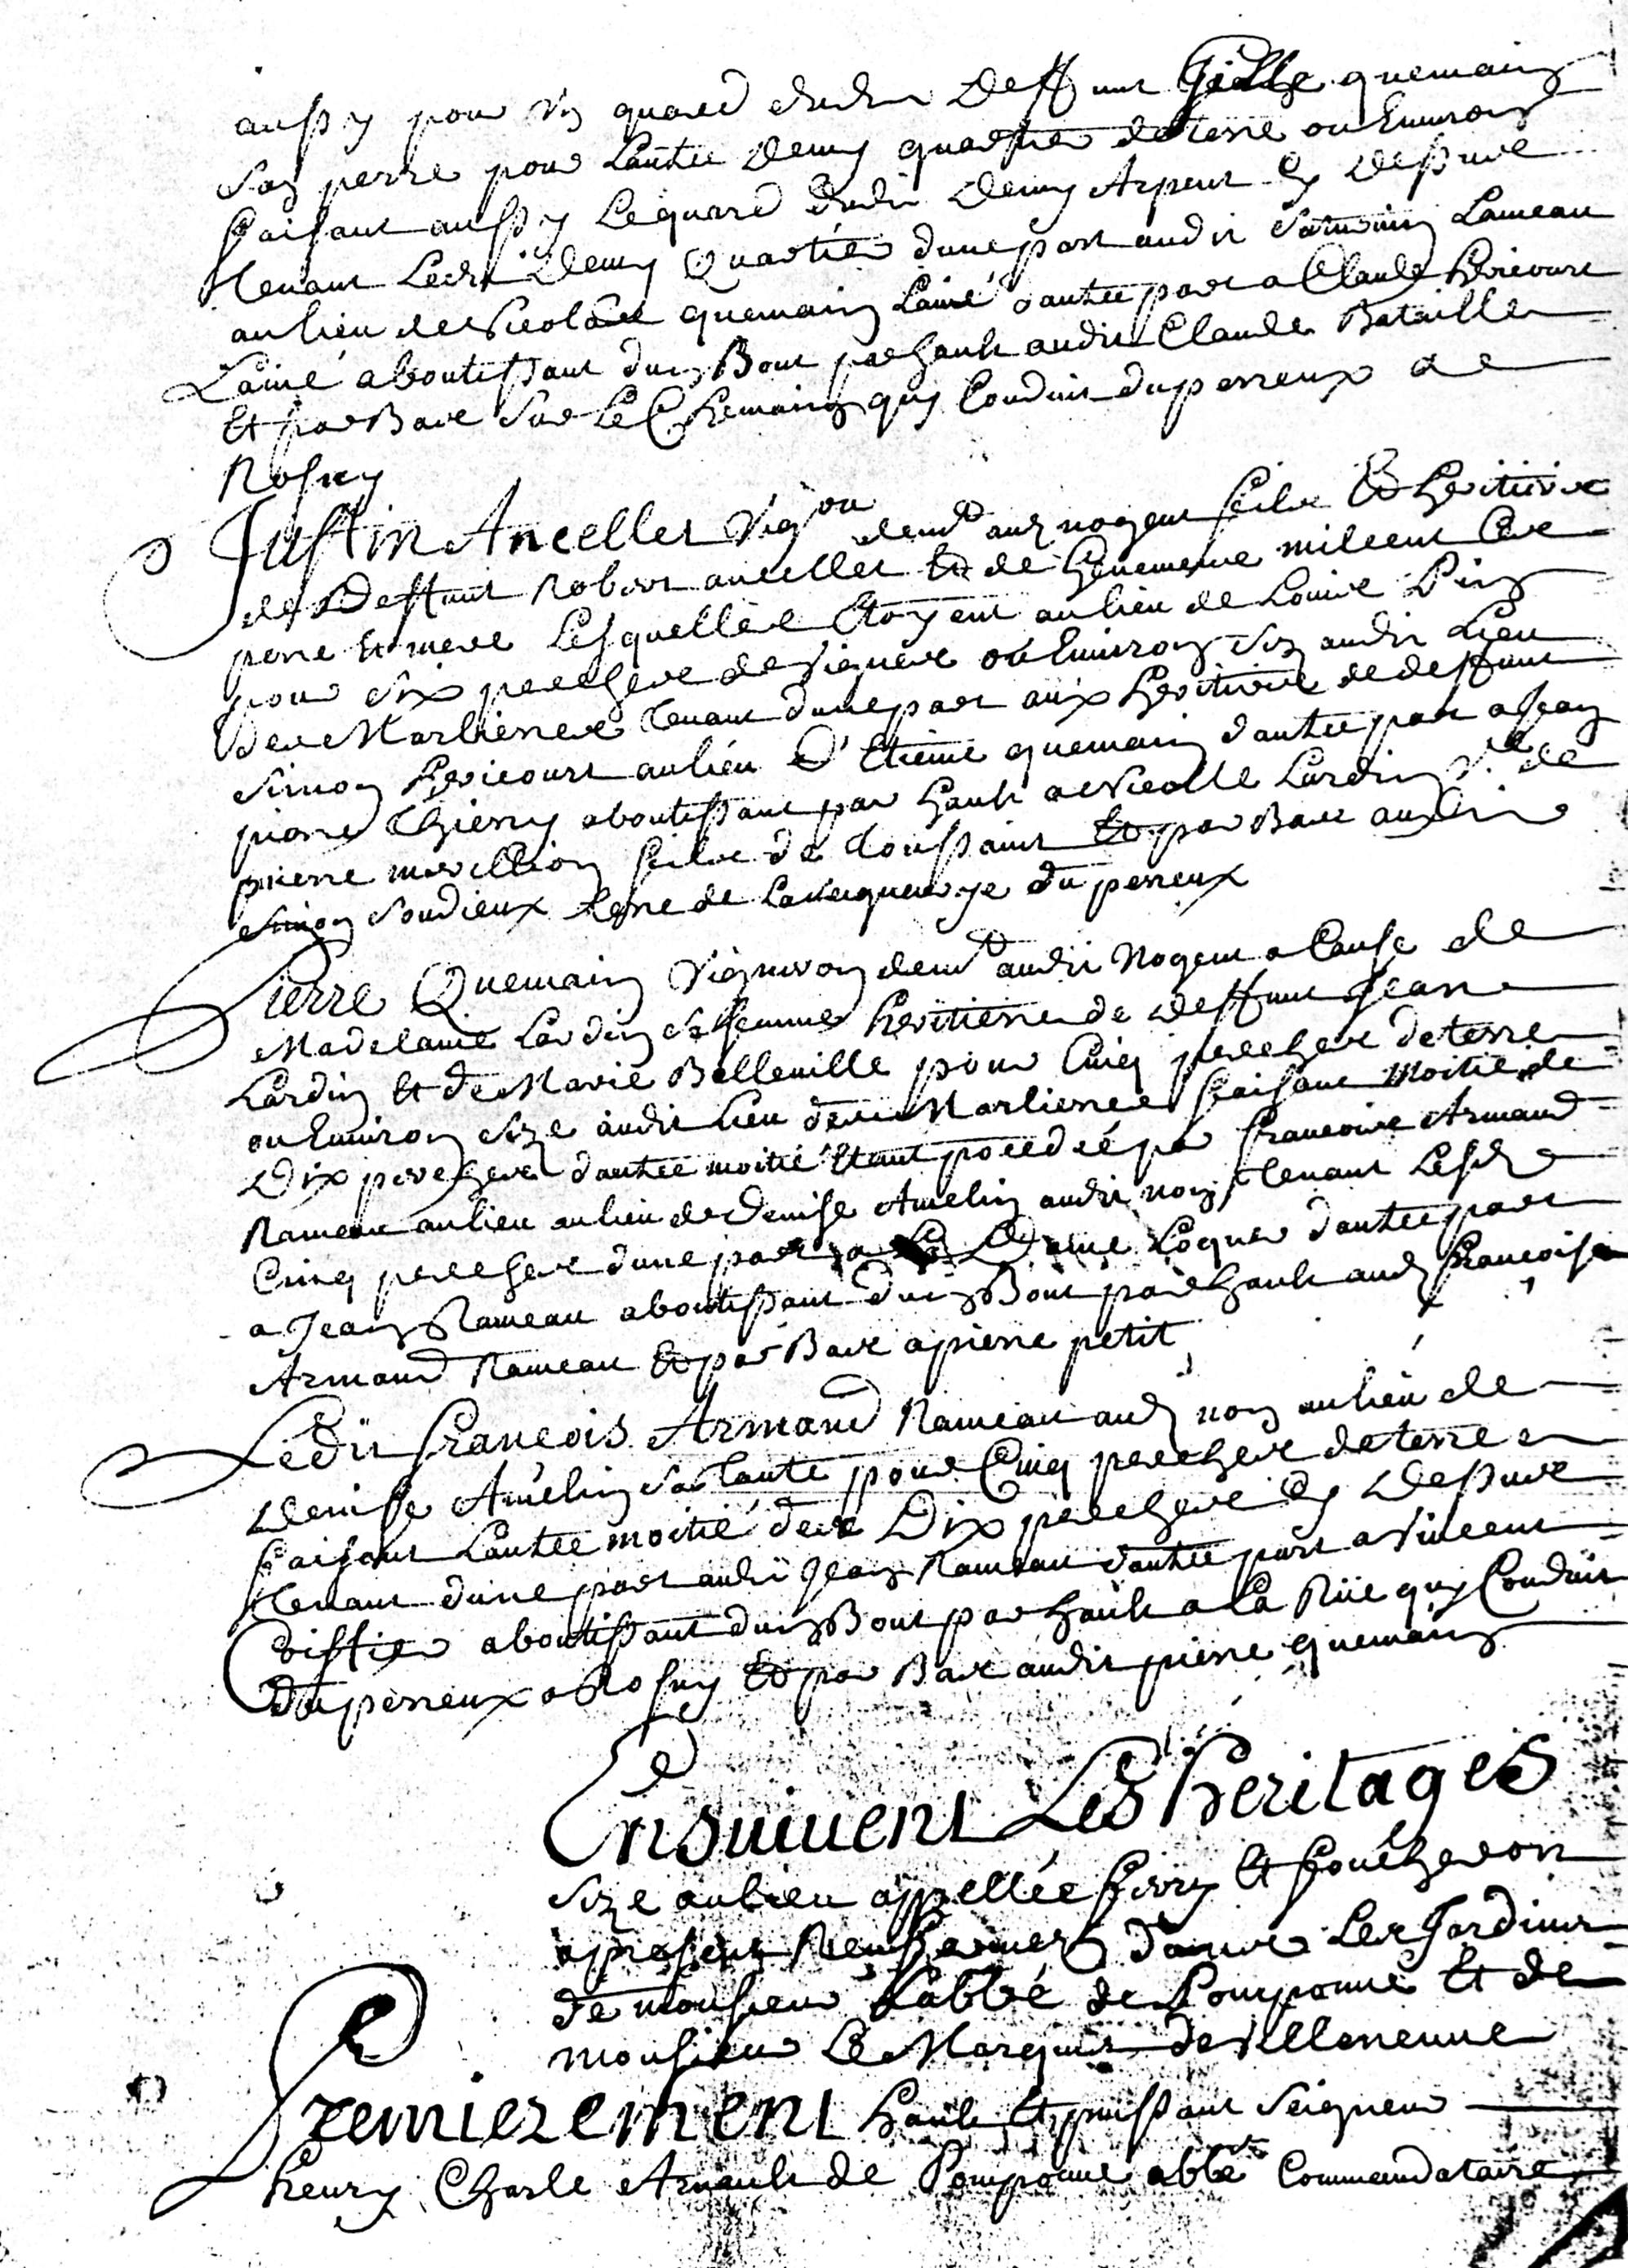 aussy pour un quard dudit deffunt Gille quemain
son perre pour Lautre demy quartier de terre ou Environ
faisant aussy Le quard dudit demy Arpent Cy dessus
tenant Ledit demy Quartier dune part audit Rameau
au lieu de Nicolas quemain Lainé dautre part a Claude hericourt
Lainé aboutissant dun Bout par hault audit Claude Bataille
Et par Bas sur Le Chemain quy Conduit du perreux a
Rosny
Justin Ancellet vigon demt aud nogent fils Et heritier
de deffunt Robert ancellet Et de Genevieve milcent ses
pere Et mere Lesquelles Etoyent au lieu de Louis
pour six perches de vignes ou Environ siz audit Lieu
des Marlieres tenant dune part aux heritiers de deffunt
simon hericourt au lieu d'Etienne quemain dautre part a Jean
pierre Thierry aboutissant par hault a Nicolle Lardin ve de
pierre fils de Toussaint Et par Bas aux
simon soudieux terre de du perreux
Pierre Quemain vigneron demt audit Nogent a Cause de
Madelaine Lardin sa femme heritiere de deffunt Jean
Lardin Et de Marie Belleville pour Cinq perches de terre
ou Environ size audit Lieu des Marlieres faisant moitié de
Dix perches dautre moitié Etant possedée par francois Armand
Rameau au lieu au lieu de denise Amelin audit nom tenant Lesd
Cinq perches dune part a La Dame Loquet dautre part
a Jean Rameau aboutissant dun Bout par hault aud francois
Armand Rameau Et par Bas a pierre petit
Ledit francois Armand Rameau aud nom au lieu de
denise Amelin sa Tante pour Cinq perches de terre
faisant Lautre moitié des Dix perches Cy dessus
tenant dune part audit Jean Rameau dautre part a Vincent
Coiffier aboutissant dun Bout par hault a La Rüe quy Conduit
du perreux a Rosny Et par Bas audit pierre quemain
Ensuivent Les heritages
size au lieu appellée Et foucheron
apresent Renfermez dans Les Jardins
de monsieur Labbé de Pomponne Et de
monsieur Le Marquis de villeneuve
Premierement hault Et puissant seigneur
henry Charle Arnault de Pomponne abbé Commandataire